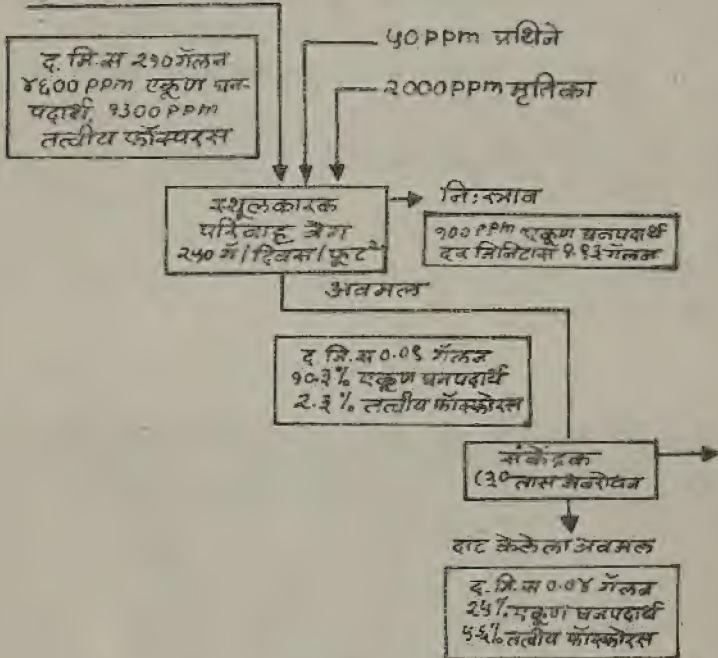 द. मि.स २९० गॅलन
४६०० PPM एकूण घन-
पदार्थ, १३०० PPM
तत्वीय फॉस्परस
५० PPM प्रथिने
२००० PPM मृतिका
स्थूलकारक
परिवाह वेग
२५० गॅ/दिवस/फूट²
नि:स्त्राव
१०० PPM एकूण घनपदार्थ
दर मिनिटास १.९३ गॅलन
अवमल
द मि.स ०.०९ गॅलन
१०.३% एकूण घनपदार्थ
२.३% तत्वीय फॉस्फोरस
संकेंद्रक
(३० तास अवरोधन
दाट केलेला अवमल
द.मि.स ०.०४ गॅलन
२५% एकूण घनपदार्थ
५.६% तत्वीय फॉस्फोरस